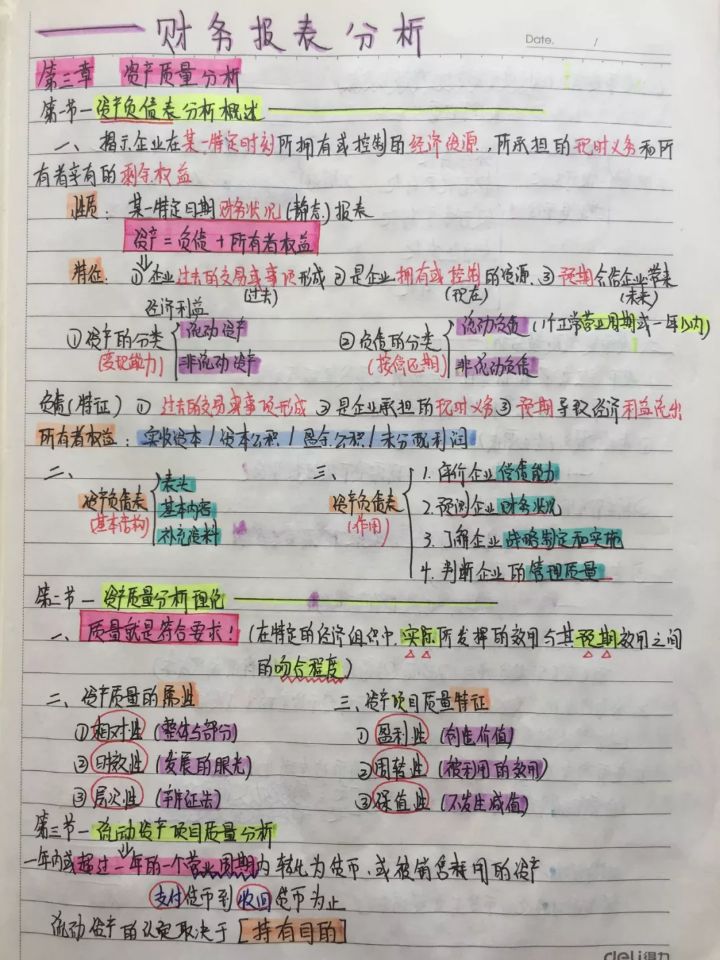 财务报表分析
Date. /
第三章 资产质量分析
第一节—资产负债表分析概述
一、揭示企业在某一特定时刻所拥有或控制的经济资源,所承担的现时义务和所
有者享有的剩余权益
性质:某一特定日期财务状况(静态)报表
资产=负债+所有者权益
特征:①企业过去的交易或事项形成 ②是企业拥有或控制的资源 ③预期会给企业带来
(过去) (现在) (未来)
经济利益
①资产的分类 流动资产 ②负债的分类 流动负债(1个正常营业周期或一年以内)
(变现能力) 非流动资产 (按偿还期) 非流动负债
负债(特征) ①过去的交易或事项形成 ②是企业承担的现时义务 ③预期导致经济利益流出
所有者权益:实收资本/资本公积/盈余公积/未分配利润
二、 三、
资产负债表 表头 资产负债表 1.评价企业偿债能力
(基本结构) 基本内容 (作用) 2.预测企业财务状况
补充资料 3.了解企业战略制定和实施
4.判断企业的管理质量
第二节—资产质量分析理论
一、质量就是符合要求!(在特定的经济组织中,实际所发挥的效用与其预期效用之间
的吻合程度)
二、资产质量的属性 三、资产项目质量特征
①相对性(整体与部分) ①盈利性(创造价值)
②时效性(发展的眼光) ②周转性(被利用的效用)
③层次性(辩证去) ③保值性(不发生减值)
第三节—流动资产项目质量分析
一年内或超过一年的一个营业周期内转化为货币、或被销售耗用的资产
支付货币到收回货币为止
流动资产的认定取决于[持有目的]
deli得力